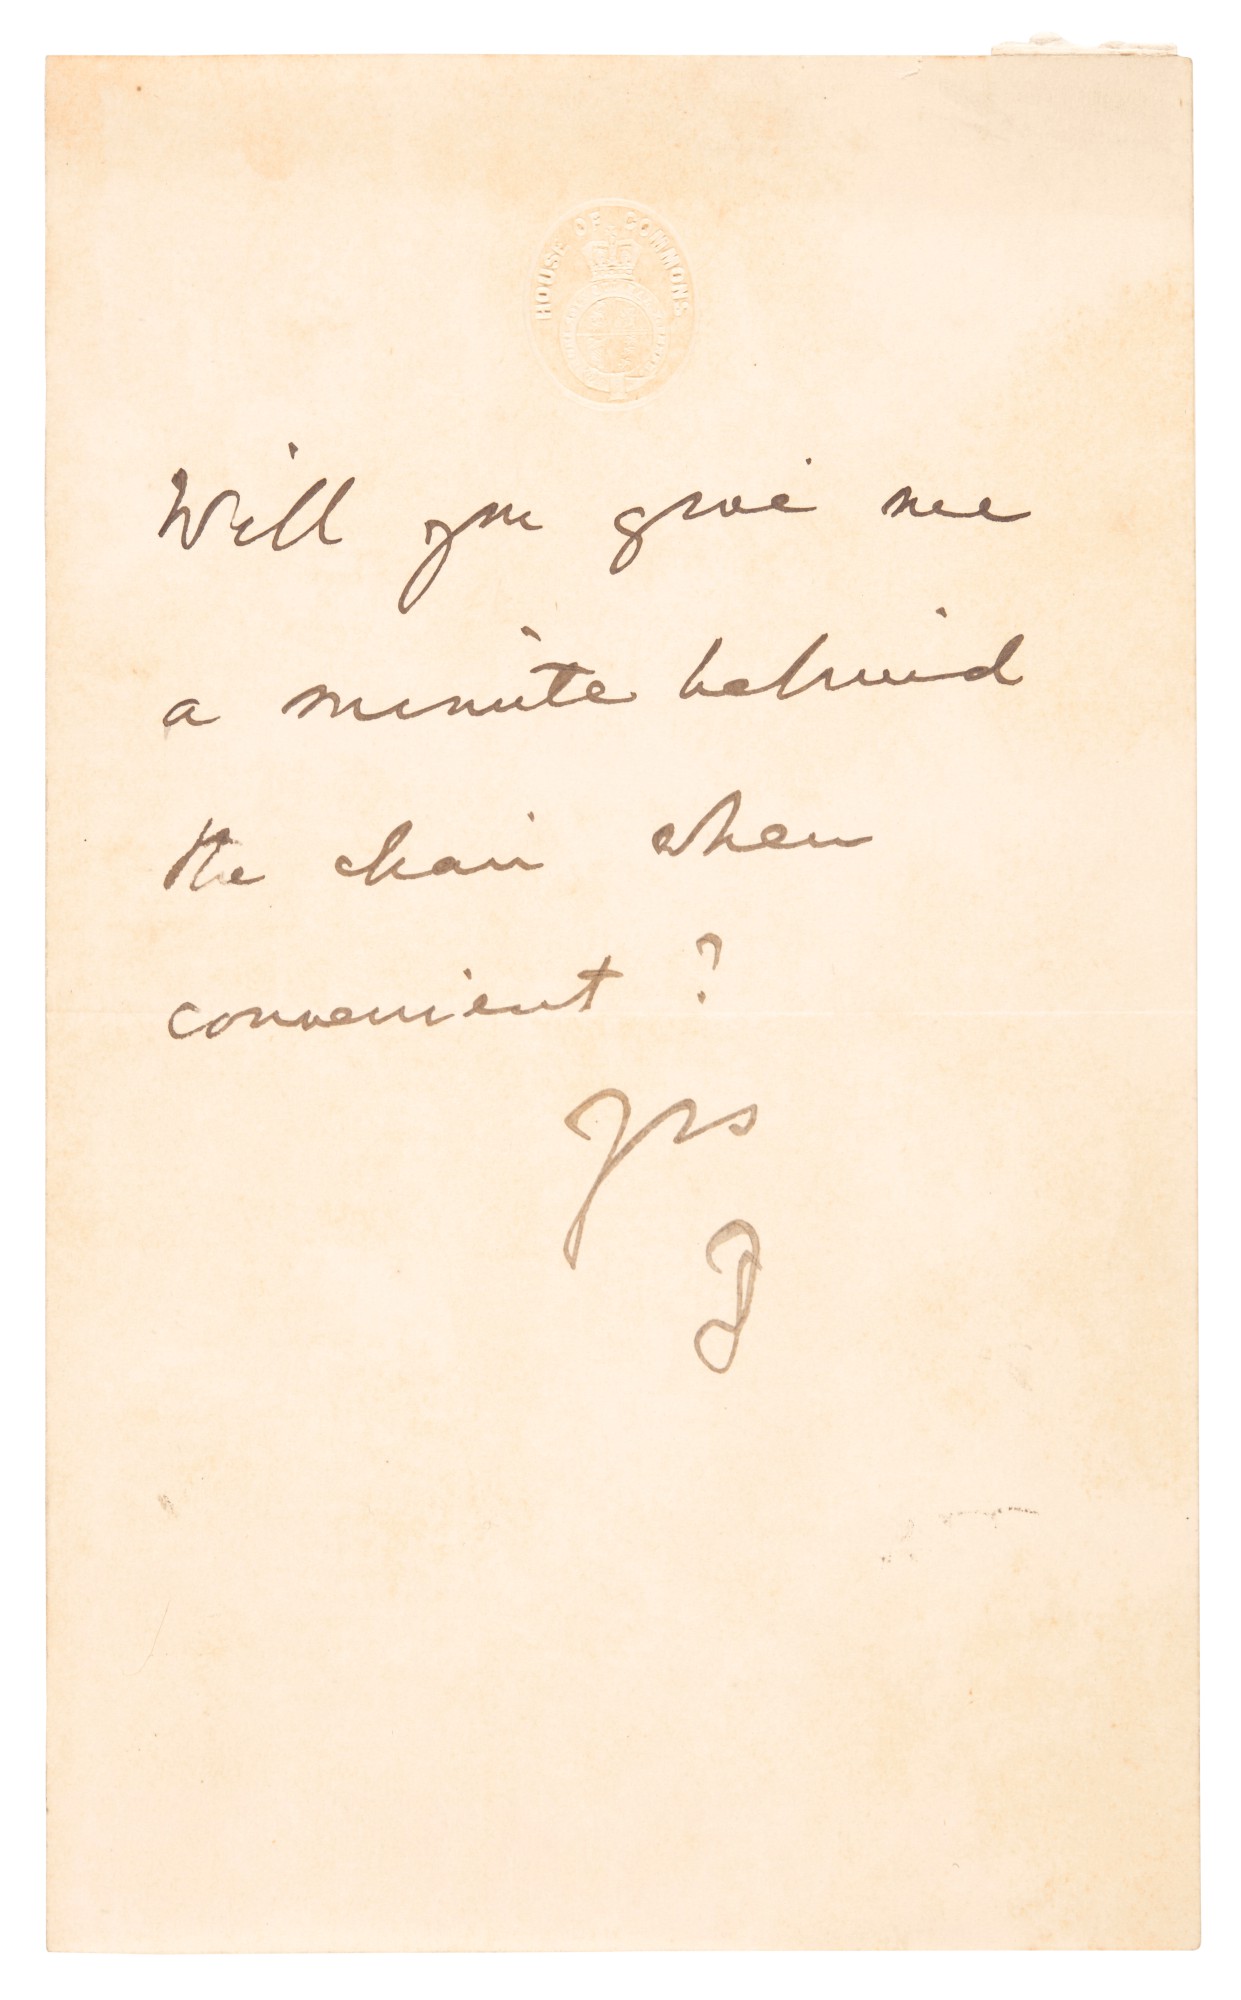 HOUSE OF COMMONS
Will you give me
a minute behind
the chair when
convenient?
Yrs